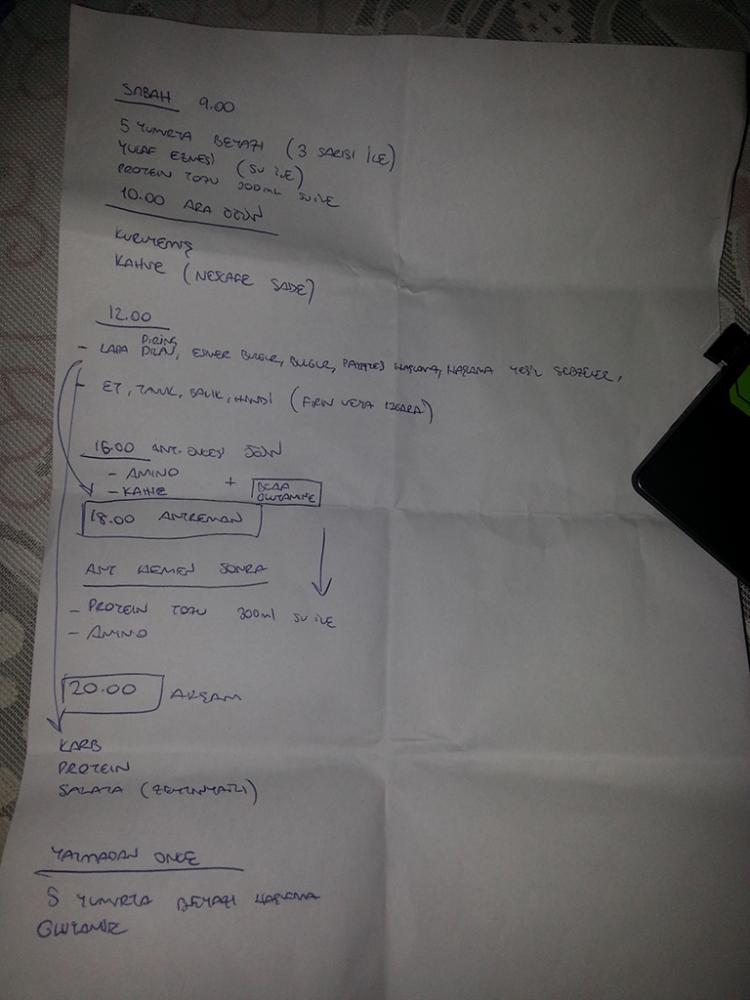 SABAH 9.00
5 YUMURTA BEYAZI (3 SARISI İLE)
YULAF EZMESİ (SU İLE)
PROTEIN TOZU 300mL SU İLE
10.00 ARA ÖĞÜN
KURUYEMİŞ
KAHVE (NESCAFE SADE)
12.00
PİRİNÇ
- LAPA PİLAV, ESMER BULGUR, BULGUR, PATATES HAŞLAMA, HAŞLAMA YEŞİL SEBZELER,
- ET, TAVUK, BALIK, HİNDİ (FIRIN VEYA IZGARA)
16.00 ANT. ÖNCESİ ÖĞÜN
- AMINO
- KAHVE + BCAA GLUTAMINE
18.00 ANTREMAN
ANT HEMEN SONRA
- PROTEIN TOZU 300ml SU İLE
- AMINO
20.00 AKŞAM
KARB
PROTEIN
SALATA (ZEYTİNYAĞLI)
YATMADAN ÖNCE
5 YUMURTA BEYAZI HAŞLAMA